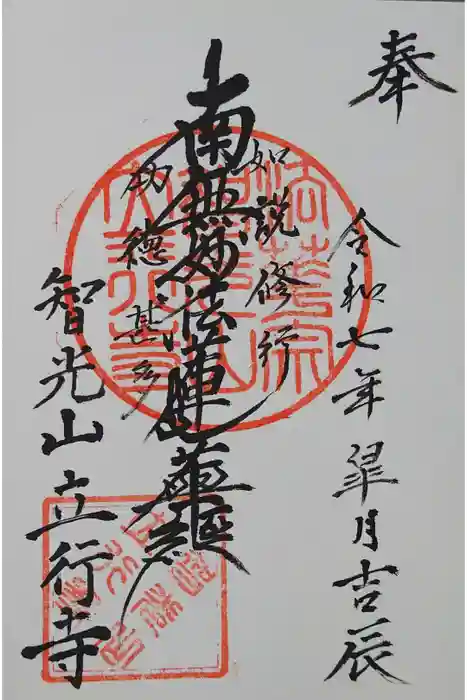 奉
令和七年皐月吉辰
如説修行
南無妙法蓮華経
功徳甚多
智光山立行寺